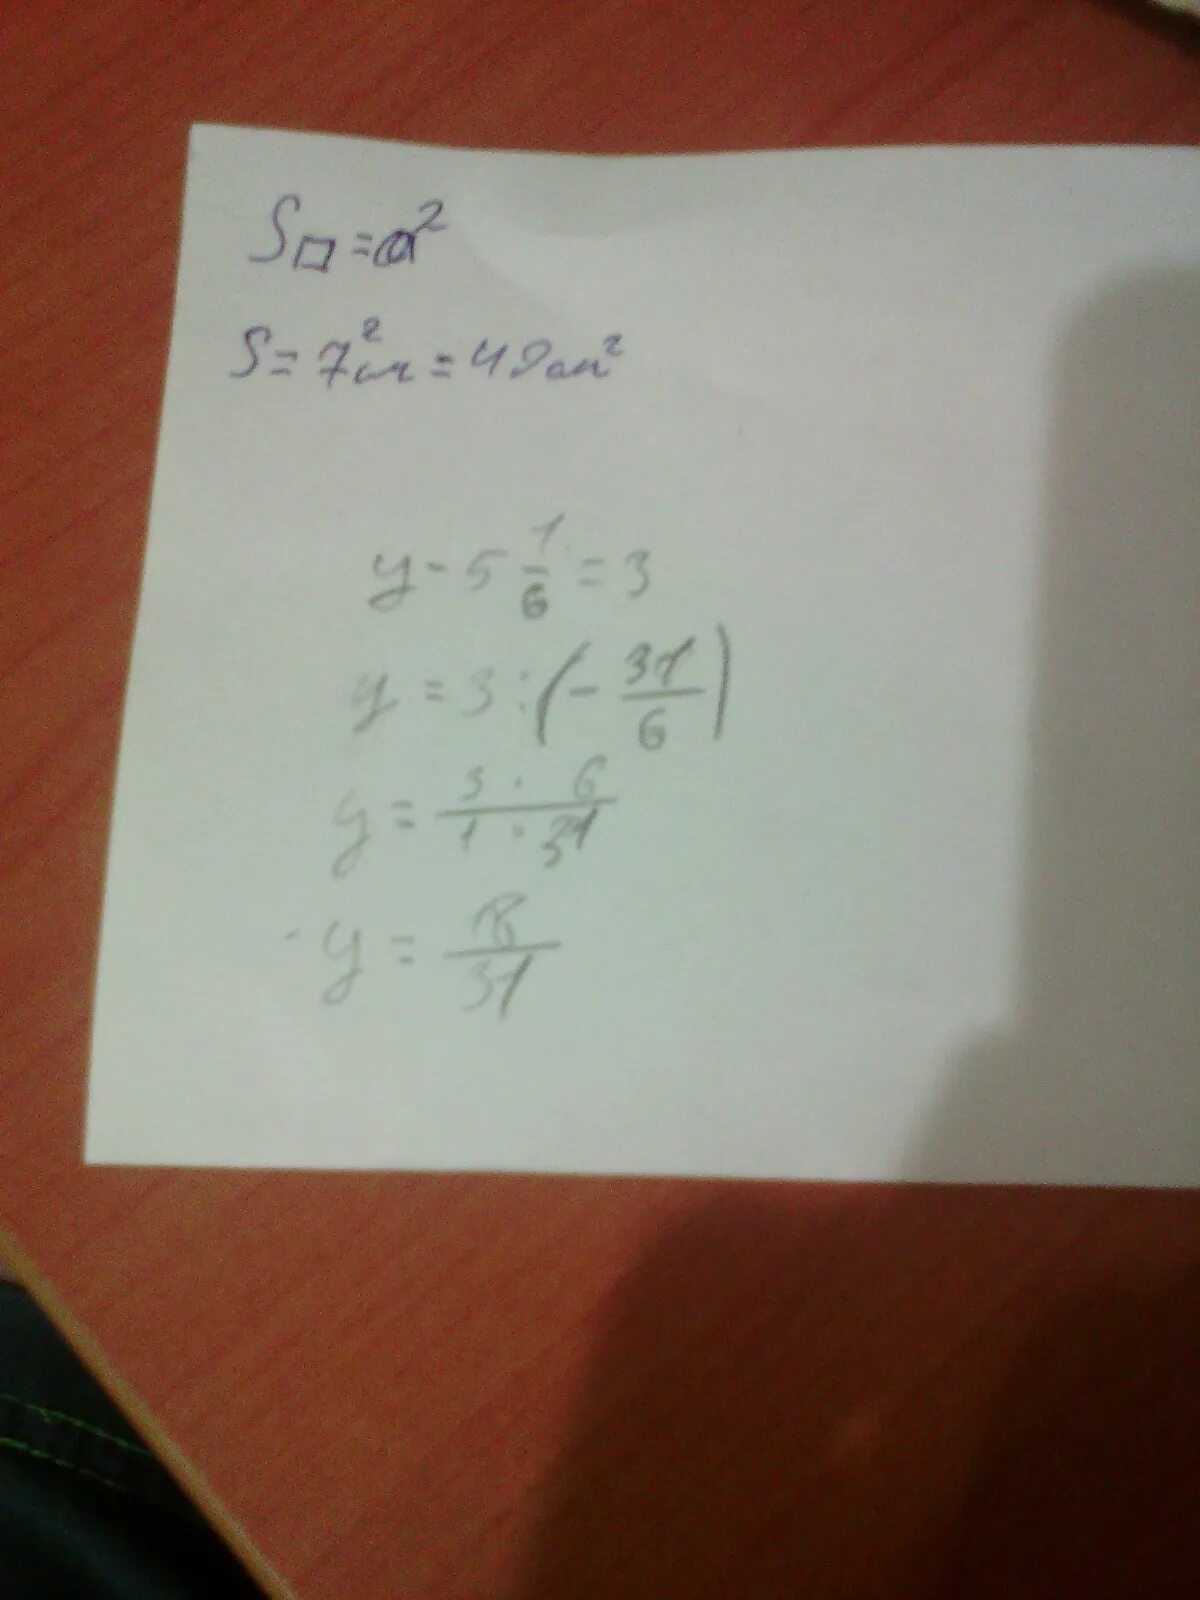 S□ = a²
S = 7²см = 49см²
y - 5 1/6 = 3
y = 3 : (- 31/6)
y = 3 · 6 / 1 · 31
y = 18/31